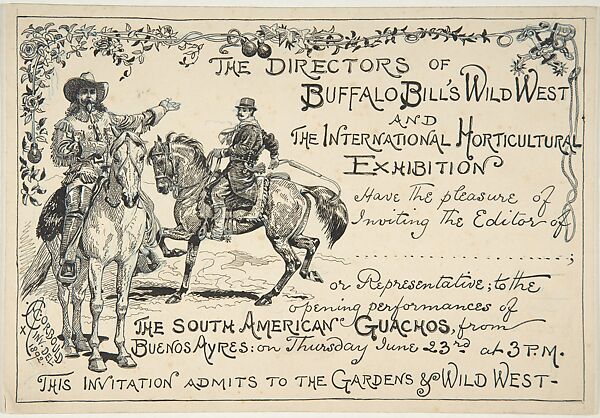 THE DIRECTORS OF
BUFFALO BILL'S WILD WEST
AND
THE INTERNATIONAL HORTICULTURAL
EXHIBITION
Have The pleasure of
Inviting The Editor of
..............................;
or Representative; to the
opening performances of
THE SOUTH AMERICAN GUACHOS, from
BUENOS AYRES: on Thursday June 23rd at 3 P.M.
THIS INVITATION ADMITS TO THE GARDENS & WILD WEST-
1892